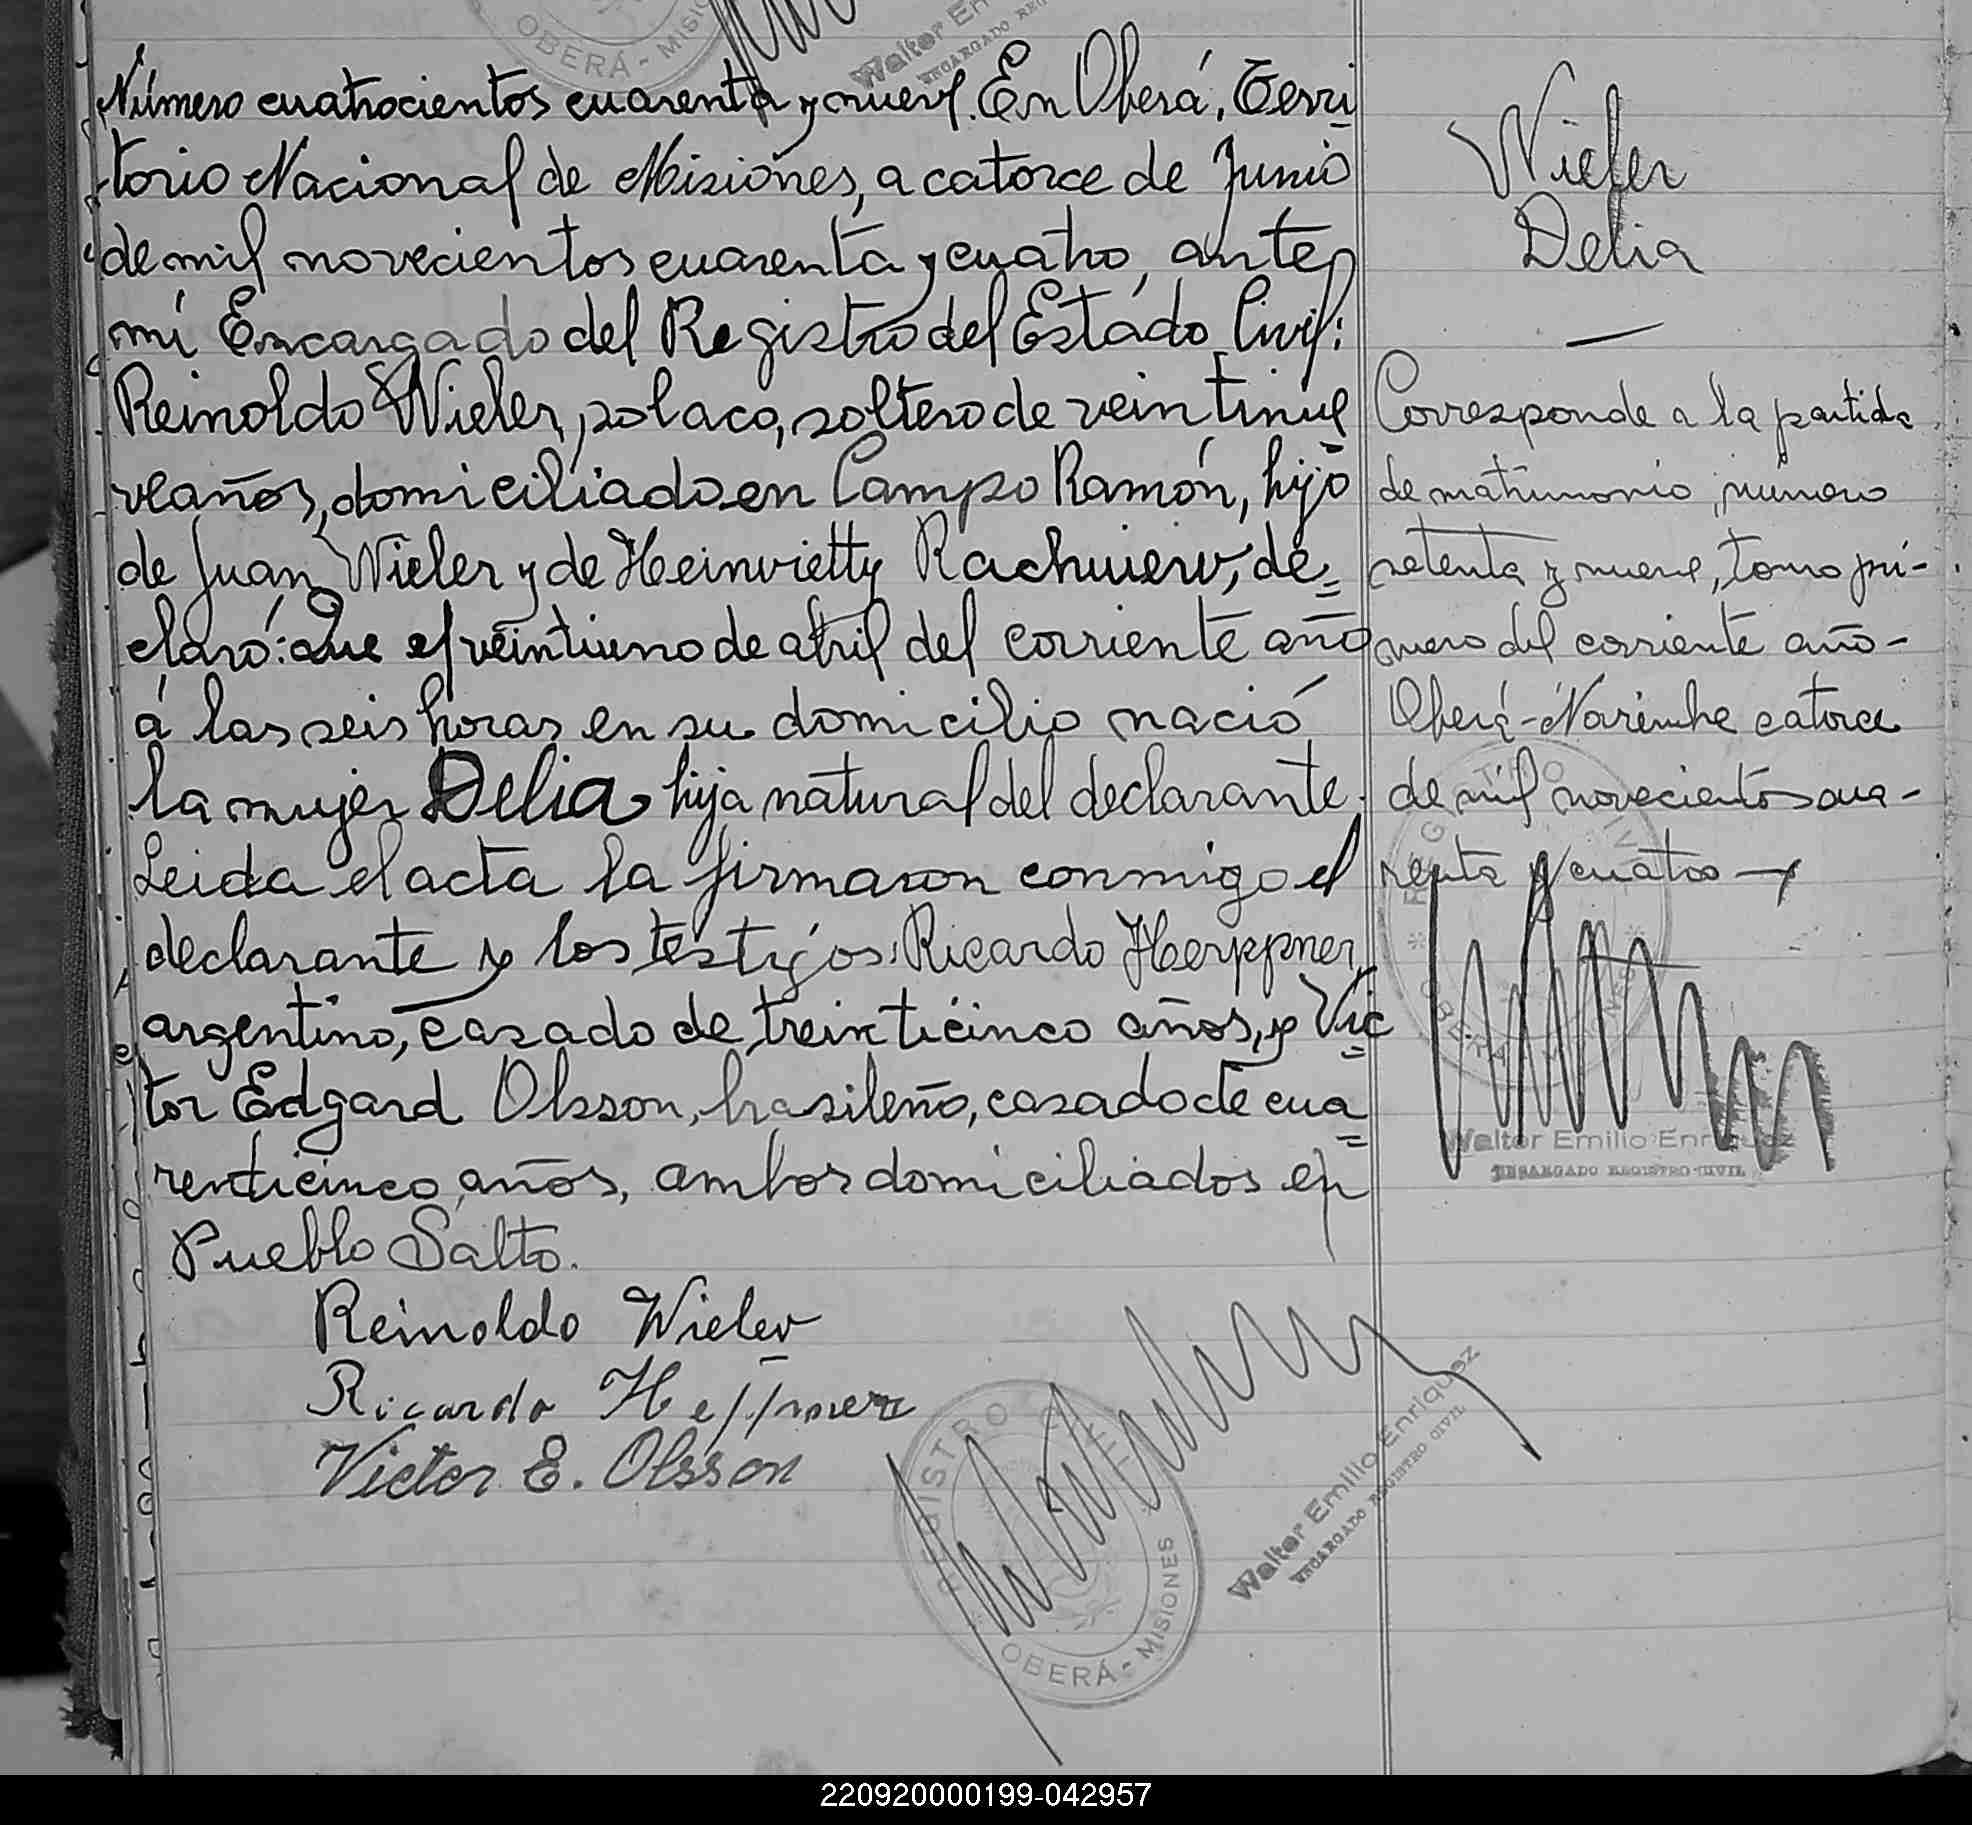 OBERÁ - MISIO
Walter En
ENCARGADO REG
Número cuatrocientos cuarenta y nueve. En Oberá, Terri
torio Nacional de Misiones, a catorce de Junio
de mil novecientos cuarenta y cuatro, ante
mí Encargado del Registro del Estado Civil:
Reinoldo Wieler, polaco, soltero de veintinue
ve años, domiciliado en Campo Ramón, hijo
de Juan Wieler y de Heinrietty Rachuierv, de=
claró: que el veintiuno de abril del corriente año
á las seis horas en su domicilio nació
la mujer Delia hija natural del declarante.
Leida el acta la firmaron conmigo el
declarante y los testigos: Ricardo Herppner,
argentino, casado de treinticinco años, y Vic=
tor Edgard Olsson, brasileño, casado de cua=
renticinco años, ambos domiciliados en
Pueblo Salto.
Reinoldo Wieler
Ricardo Heppner
Victor E. Olsson
REGISTRO CIVIL
OBERÁ - MISIONES
Walter Emilio Enriquez
ENCARGADO REGISTRO CIVIL
Wieler
Delia
—
Corresponde a la partida
de matrimonio, número
setenta y nueve, tomo pri-
mero del corriente año -
Oberá - Noviembre catorce
de mil novecientos cua-
renta y cuatro —
REGISTRO CIVIL
OBERÁ - MISIONES
Walter Emilio Enriquez
ENCARGADO REGISTRO CIVIL
220920000199-042957